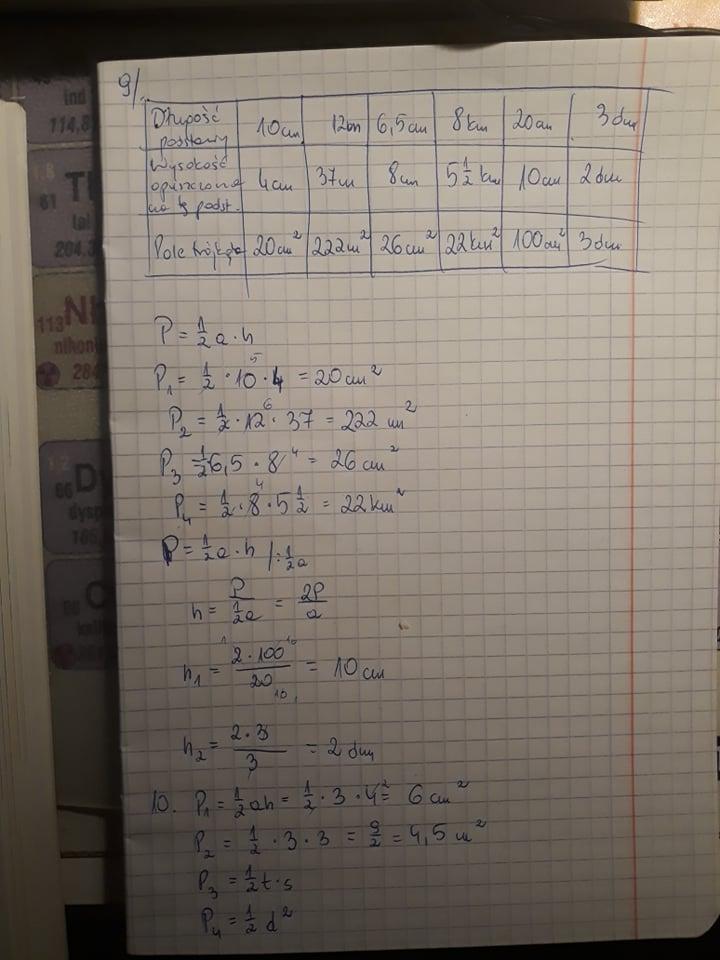 9/.
Długość podstawy | 10cm | 12m | 6,5cm | 8km | 20cm | 3dm
Wysokość opuszczona na tę podst. | 4cm | 37m | 8cm | 5 1/2 km | 10cm | 2dm
Pole trójkąta | 20cm² | 222m² | 26cm² | 22km² | 100cm² | 3dm
P = 1/2 a · h
P₁ = 1/2 · 10 5 · 4 = 20cm²
P₂ = 1/2 · 12 6 · 37 = 222 m²
P₃ = 1/2 6,5 · 8 4 = 26cm²
P₄ = 1/2 · 8 4 · 5 1/2 = 22km²
P = 1/2 a · h /: 1/2 a
h = P / 1/2 a = 2P/a
h₁ = 2 · 100 / 20 = 10cm
h₂ = 2 · 3 / 3 = 2 dm
10. P₁ = 1/2 ah = 1/2 · 3 · 4 2 = 6cm²
P₂ = 1/2 · 3 · 3 = 9/2 = 4,5 m²
P₃ = 1/2 t · s
P₄ = 1/2 d²
ind
114,8
61
204,3
113 Nh
nihon
284
66 Dy
dysp